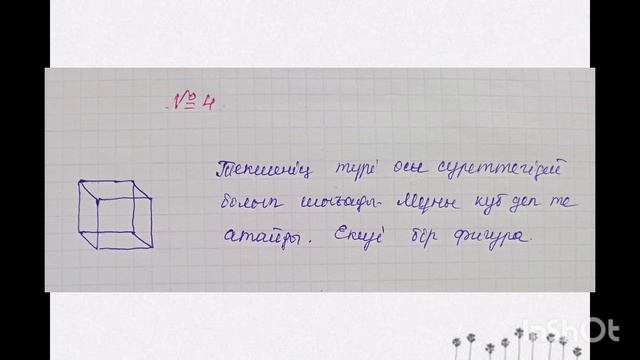 № 4
Текшенің түрі осы суреттегідей
болып шығады. Мұны куб деп те
атайды. Екеуі бір фигура.
InShOt